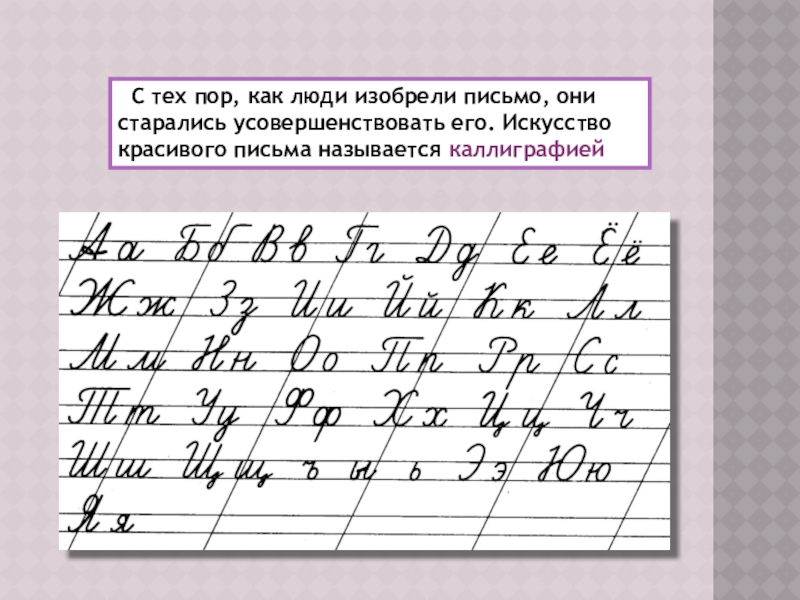 С тех пор, как люди изобрели письмо, они
старались усовершенствовать его. Искусство
красивого письма называется каллиграфией
Аа Бб Вв Гг Дд Ее Ёё
Жж Зз Ии Йй Кк Лл
Мм Нн Оо Пп Рр Сс
Тт Уу Фф Хх Цц Чч
Шш Щщ ъ ы ь Ээ Юю
Яя